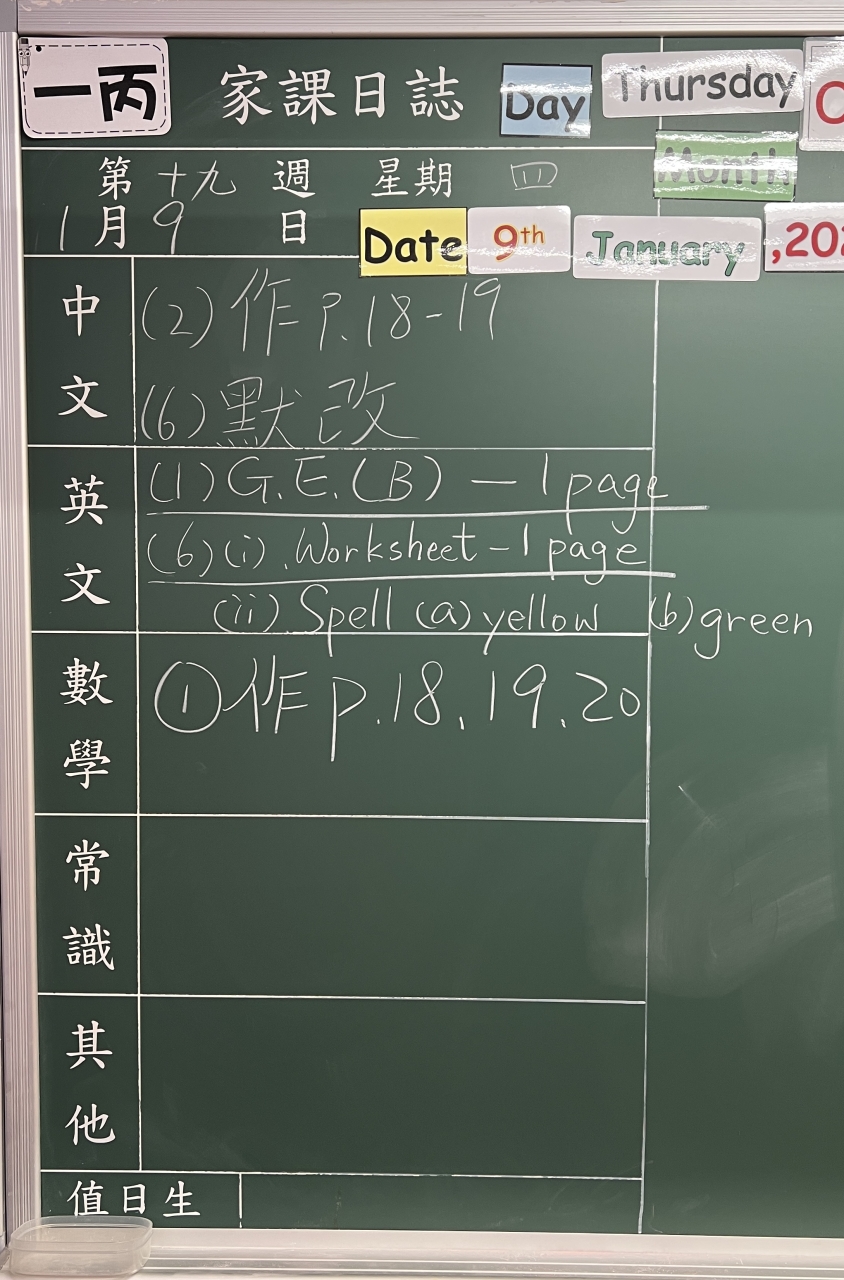 一丙 家課日誌 Day Thursday
第十九週 星期四 Month
1月9日 Date 9th January
中文 (2)作P.18-19
(6)默改
英文 (1)G.E.(B) — 1 page
(6)(i).Worksheet – 1 page
(ii) Spell (a) yellow (b) green
數學 ①作p.18.19.20
常識
其他
值日生